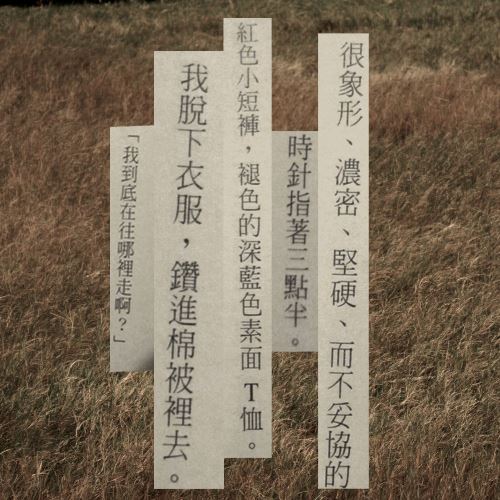 很象形、濃密、堅硬、而不妥協的
時針指著三點半。
紅色小短褲，褪色的深藍色素面T恤。
我脫下衣服，鑽進棉被裡去。
「我到底在往哪裡走啊？」